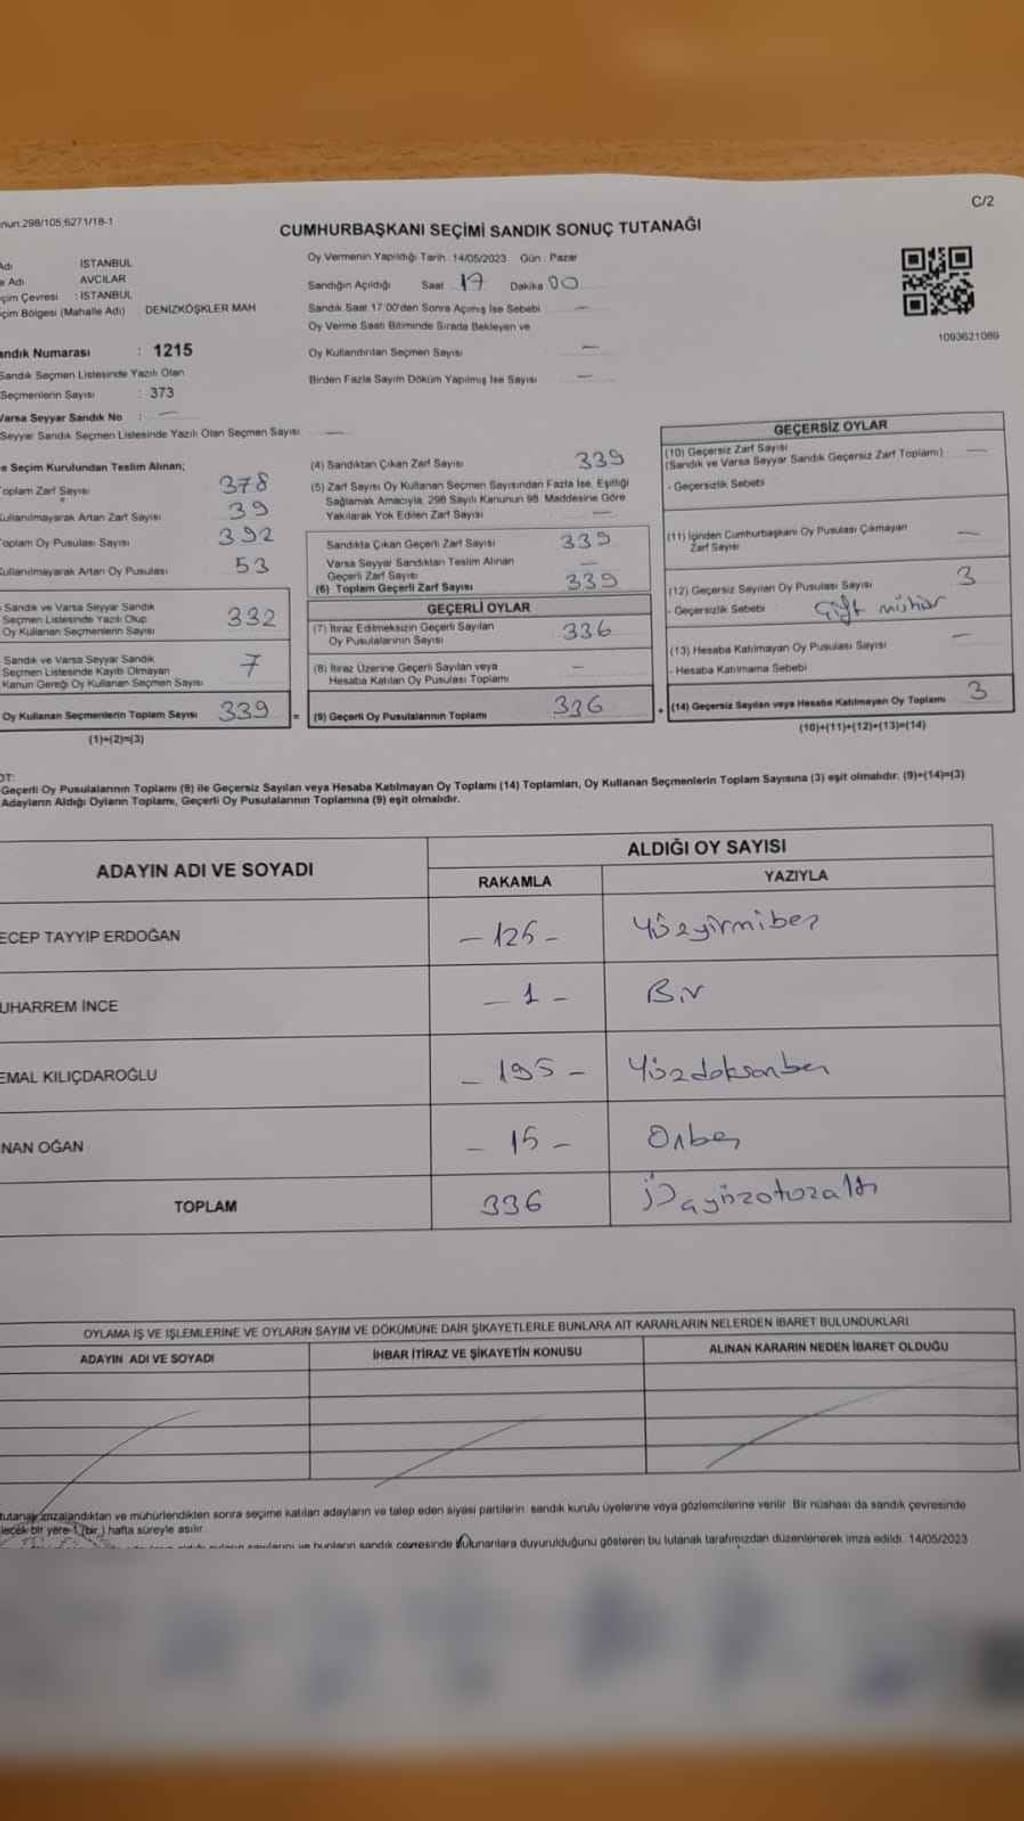 C/2
nun:298/105;6271/18-1
CUMHURBAŞKANI SEÇİMİ SANDIK SONUÇ TUTANAĞI
Adı : İSTANBUL
e Adı : AVCILAR
çim Çevresi : İSTANBUL
çim Bölgesi (Mahalle Adı) DENİZKÖŞKLER MAH
andık Numarası : 1215
Sandık Seçmen Listesinde Yazılı Olan
Seçmenlerin Sayısı : 373
Varsa Seyyar Sandık No : —
Seyyar Sandık Seçmen Listesinde Yazılı Olan Seçmen Sayısı —
Oy Vermenin Yapıldığı Tarih : 14/05/2023 Gün : Pazar
Sandığın Açıldığı Saat 17 Dakika 00
Sandık Saat 17:00'den Sonra Açılmış İse Sebebi —
Oy Verme Saati Bitiminde Sırada Bekleyen ve
Oy Kullandırılan Seçmen Sayısı —
Birden Fazla Sayım Döküm Yapılmış İse Sayısı —
1093621089
e Seçim Kurulundan Teslim Alınan;
oplam Zarf Sayısı 378
ullanılmayarak Artan Zarf Sayısı 39
oplam Oy Pusulası Sayısı 392
ullanılmayarak Artan Oy Pusulası 53
Sandık ve Varsa Seyyar Sandık
Seçmen Listesinde Yazılı Olup
Oy Kullanan Seçmenlerin Sayısı 332
Sandık ve Varsa Seyyar Sandık
Seçmen Listesinde Kayıtlı Olmayan
Kanun Gereği Oy Kullanan Seçmen Sayısı 7
Oy Kullanan Seçmenlerin Toplam Sayısı 339
(1)+(2)=(3)
(4) Sandıktan Çıkan Zarf Sayısı 339
(5) Zarf Sayısı Oy Kullanan Seçmen Sayısından Fazla İse, Eşitliği
Sağlamak Amacıyla, 298 Sayılı Kanunun 98. Maddesine Göre
Yakılarak Yok Edilen Zarf Sayısı —
Sandıkta Çıkan Geçerli Zarf Sayısı 339
Varsa Seyyar Sandıktan Teslim Alınan
Geçerli Zarf Sayısı —
(6) Toplam Geçerli Zarf Sayısı 339
GEÇERLİ OYLAR
(7) İtiraz Edilmeksizin Geçerli Sayılan
Oy Pusulalarının Sayısı 336
(8) İtiraz Üzerine Geçerli Sayılan veya
Hesaba Katılan Oy Pusulası Toplamı —
= (9) Geçerli Oy Pusulalarının Toplamı 336
GEÇERSİZ OYLAR
(10) Geçersiz Zarf Sayısı
(Sandık ve Varsa Seyyar Sandık Geçersiz Zarf Toplamı) —
- Geçersizlik Sebebi
(11) İçinden Cumhurbaşkanı Oy Pusulası Çıkmayan
Zarf Sayısı —
(12) Geçersiz Sayılan Oy Pusulası Sayısı 3
- Geçersizlik Sebebi Çift mühür
(13) Hesaba Katılmayan Oy Pusulası Sayısı —
- Hesaba Katılmama Sebebi
+ (14) Geçersiz Sayılan veya Hesaba Katılmayan Oy Toplamı 3
(10)+(11)+(12)+(13)=(14)
OT:
Geçerli Oy Pusulalarının Toplamı (9) ile Geçersiz Sayılan veya Hesaba Katılmayan Oy Toplamı (14) Toplamları, Oy Kullanan Seçmenlerin Toplam Sayısına (3) eşit olmalıdır. (9)+(14)=(3)
Adayların Aldığı Oyların Toplamı, Geçerli Oy Pusulalarının Toplamına (9) eşit olmalıdır.
ADAYIN ADI VE SOYADI
ALDIĞI OY SAYISI
RAKAMLA YAZIYLA
ECEP TAYYIP ERDOĞAN - 125 - Yüzyirmibeş
UHARREM İNCE - 1 - Bir
EMAL KILIÇDAROĞLU - 195 - Yüzdoksanbeş
NAN OĞAN - 15 - Onbeş
TOPLAM 336 Üçyüzotuzaltı
OYLAMA İŞ VE İŞLEMLERİNE VE OYLARIN SAYIM VE DÖKÜMÜNE DAİR ŞİKAYETLERLE BUNLARA AİT KARARLARIN NELERDEN İBARET BULUNDUKLARI
ADAYIN ADI VE SOYADI İHBAR İTİRAZ VE ŞİKAYETİN KONUSU ALINAN KARARIN NEDEN İBARET OLDUĞU
tutanak imzalandıktan ve mühürlendikten sonra seçime katılan adayların ve talep eden siyasi partilerin sandık kurulu üyelerine veya gözlemcilerine verilir. Bir nüshası da sandık çevresinde
lecek bir yere 1 (bir) hafta süreyle asılır.
sandık çevresinde bulunanlara duyurulduğunu gösteren bu tutanak tarafımızdan düzenlenerek imza edildi. 14/05/2023